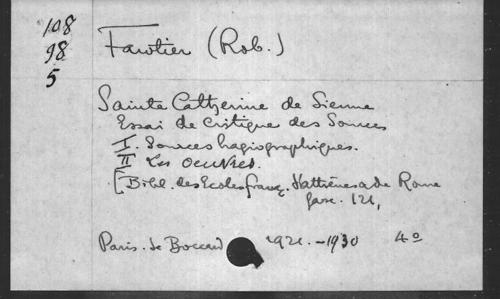 108
98
5
Fawtier (Rob.)
Sainte Catherine de Sienne
Essai de critique des Sources
I. Sources hagiographiques.
II Les Oeuvres.
[Bibl. des Ecoles franç. d'Athènes & de Rome
fasc. 121,
Paris. de Boccard 1921.-1930 4o